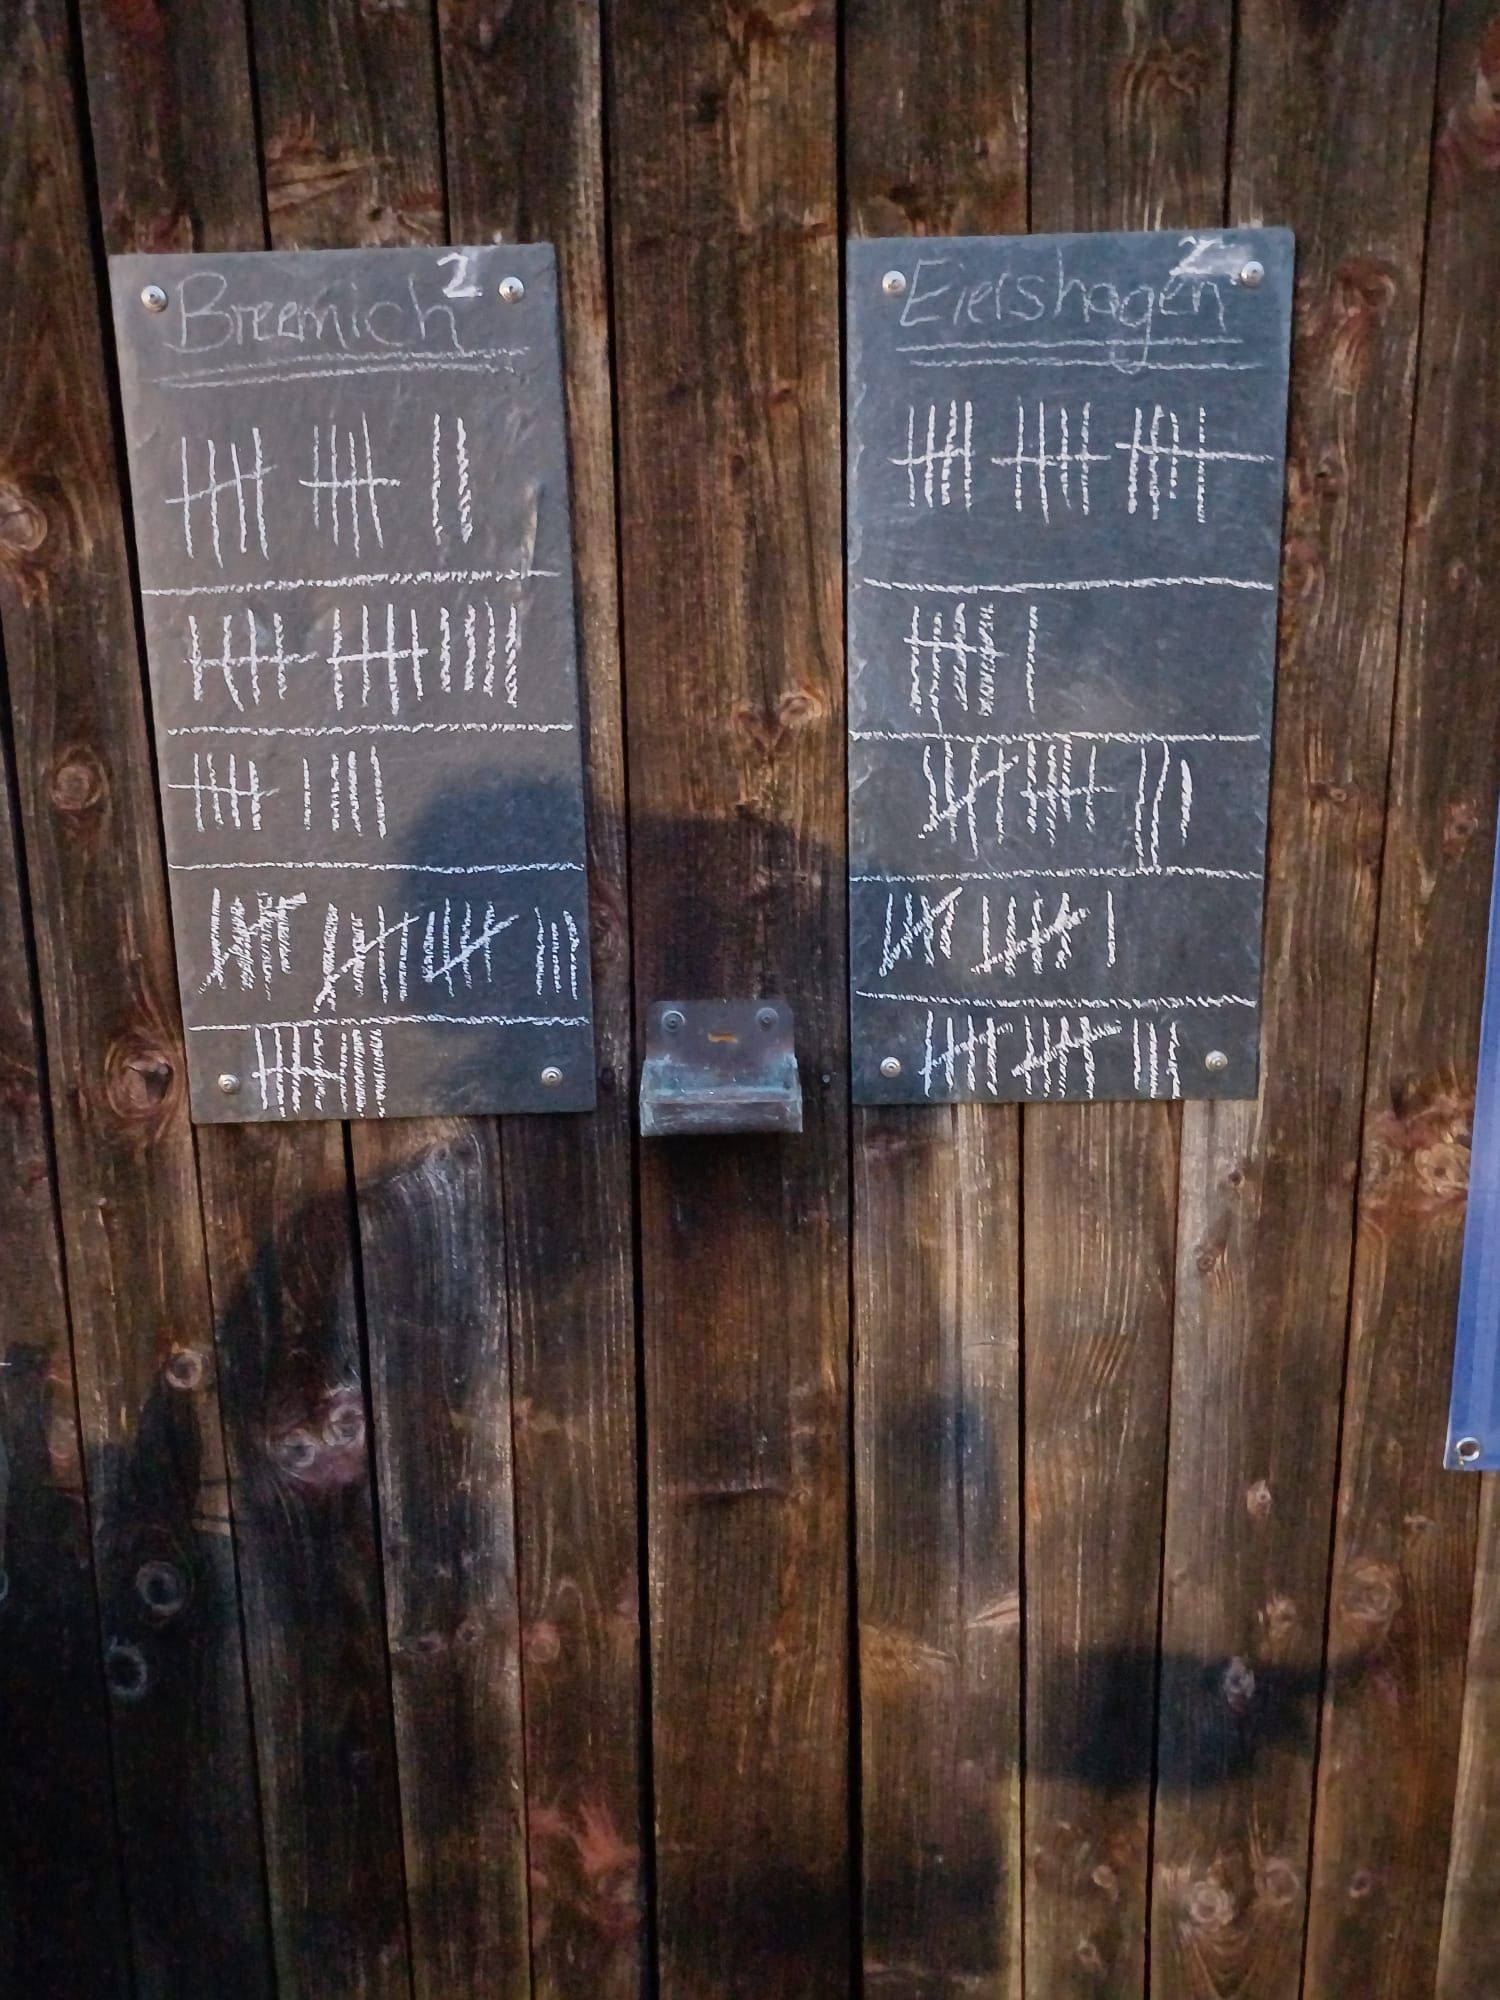 Breemich 2
Eiershagen 2